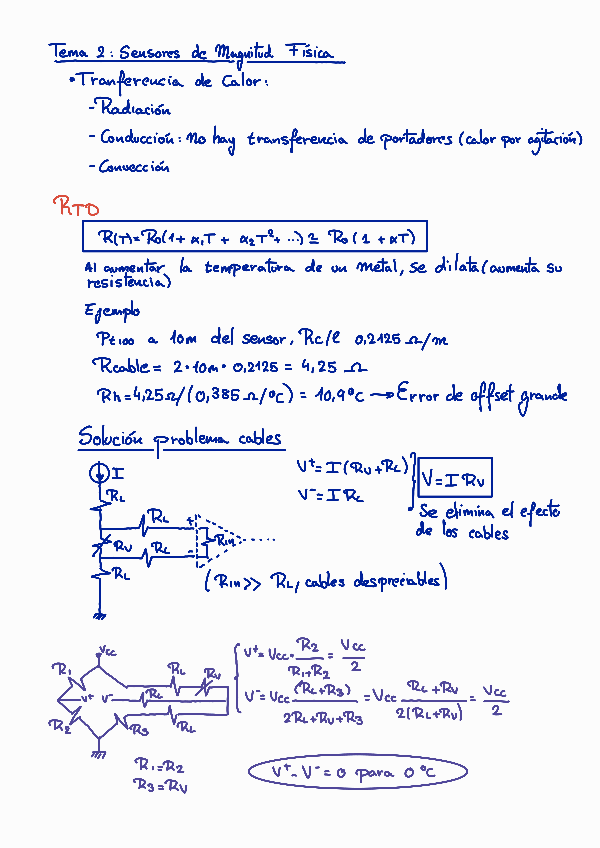 Tema 2: Sensores de Magnitud Física
• Tranferencia de Calor:
- Radiación
- Conducción: No hay transferencia de portadores (calor por agitación)
- Convección
RTD
R(T)=R0(1+ α1T + α2T²+ ...) ≅ R0 (1 + αT)
Al aumentar la temperatura de un metal, se dilata (aumenta su
resistencia)
Ejemplo
Pt100 a 10m del sensor. Rc/l 0,2125 Ω/m
Rcable = 2·10m· 0,2125 = 4,25 Ω
Rh=4,25Ω/(0,385 Ω/ºC) = 10,9ºC → Error de offset grande
Solución problema cables
I
V⁺= I (Rv+RL)
V⁻= I RL
V = I Rv
RL
RL
Se elimina el efecto
de los cables
+
Rin
Rv
RL
-
RL
(Rin >> RL, cables despreciables)
Vcc
R1
RL
Rv
V⁺ V⁻
RL
R2
R3
RL
V⁺= Vcc · R2/(R1+R2) = Vcc/2
V⁻= Vcc (RL+R3)/(2RL+Rv+R3) = Vcc (RL+Rv)/(2(RL+Rv)) = Vcc/2
R1=R2
R3=Rv
V⁺- V⁻= 0 para 0 ºC